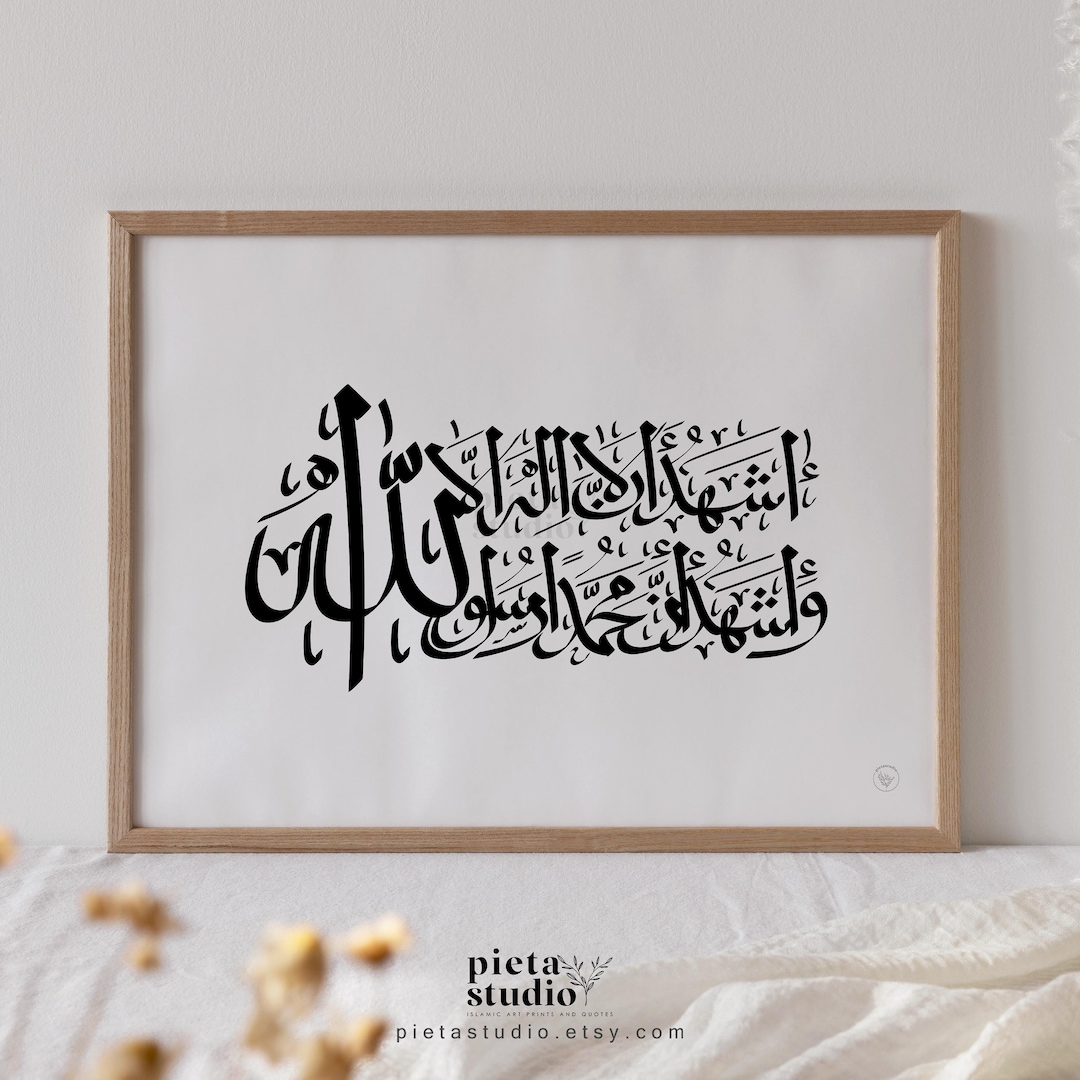 أشهد أن لا إله إلا الله
وأشهد أن محمدًا رسول الله
studio
pietastudio
pieta
studio
ISLAMIC ART PRINTS AND QUOTES
pietastudio.etsy.com